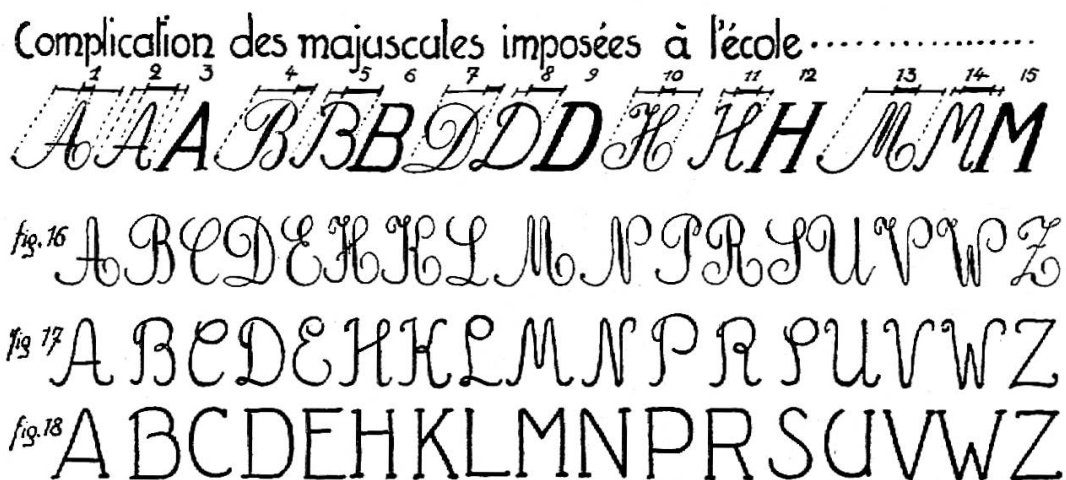 Complication des majuscules imposées à l'école
1 2 3 4 5 6 7 8 9 10 11 12 13 14 15
A A A B B B D D D H H H M M M
fig. 16 A B C D E H K L M N P R S U V W Z
fig 17 A B C D E H K L M N P R S U V W Z
fig. 18 A B C D E H K L M N P R S U V W Z